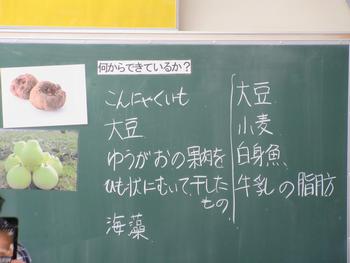 何からできているか？
こんにゃくいも
大豆
ゆうがおの果肉を
ひも状にむいて、干した
もの
海藻
大豆
小麦
白身魚
牛乳の脂肪方